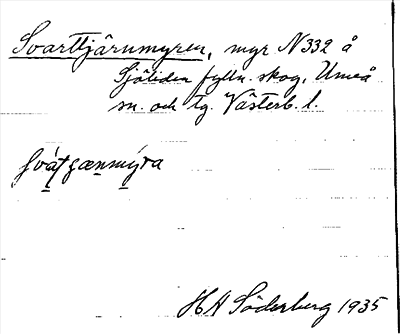 Svarttjärnmyren, myr N 332 å
Sjöliden fylln. skog, Umeå
sn. och tg. Västerb. l.
HA Söderberg 1935